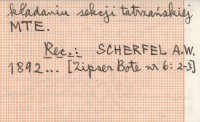 kładaniu sekcji tatrzańskiej
MTE.
Rec.: SCHERFEL A.W.
1892... [Zipser Bote nr 6: 2-3]